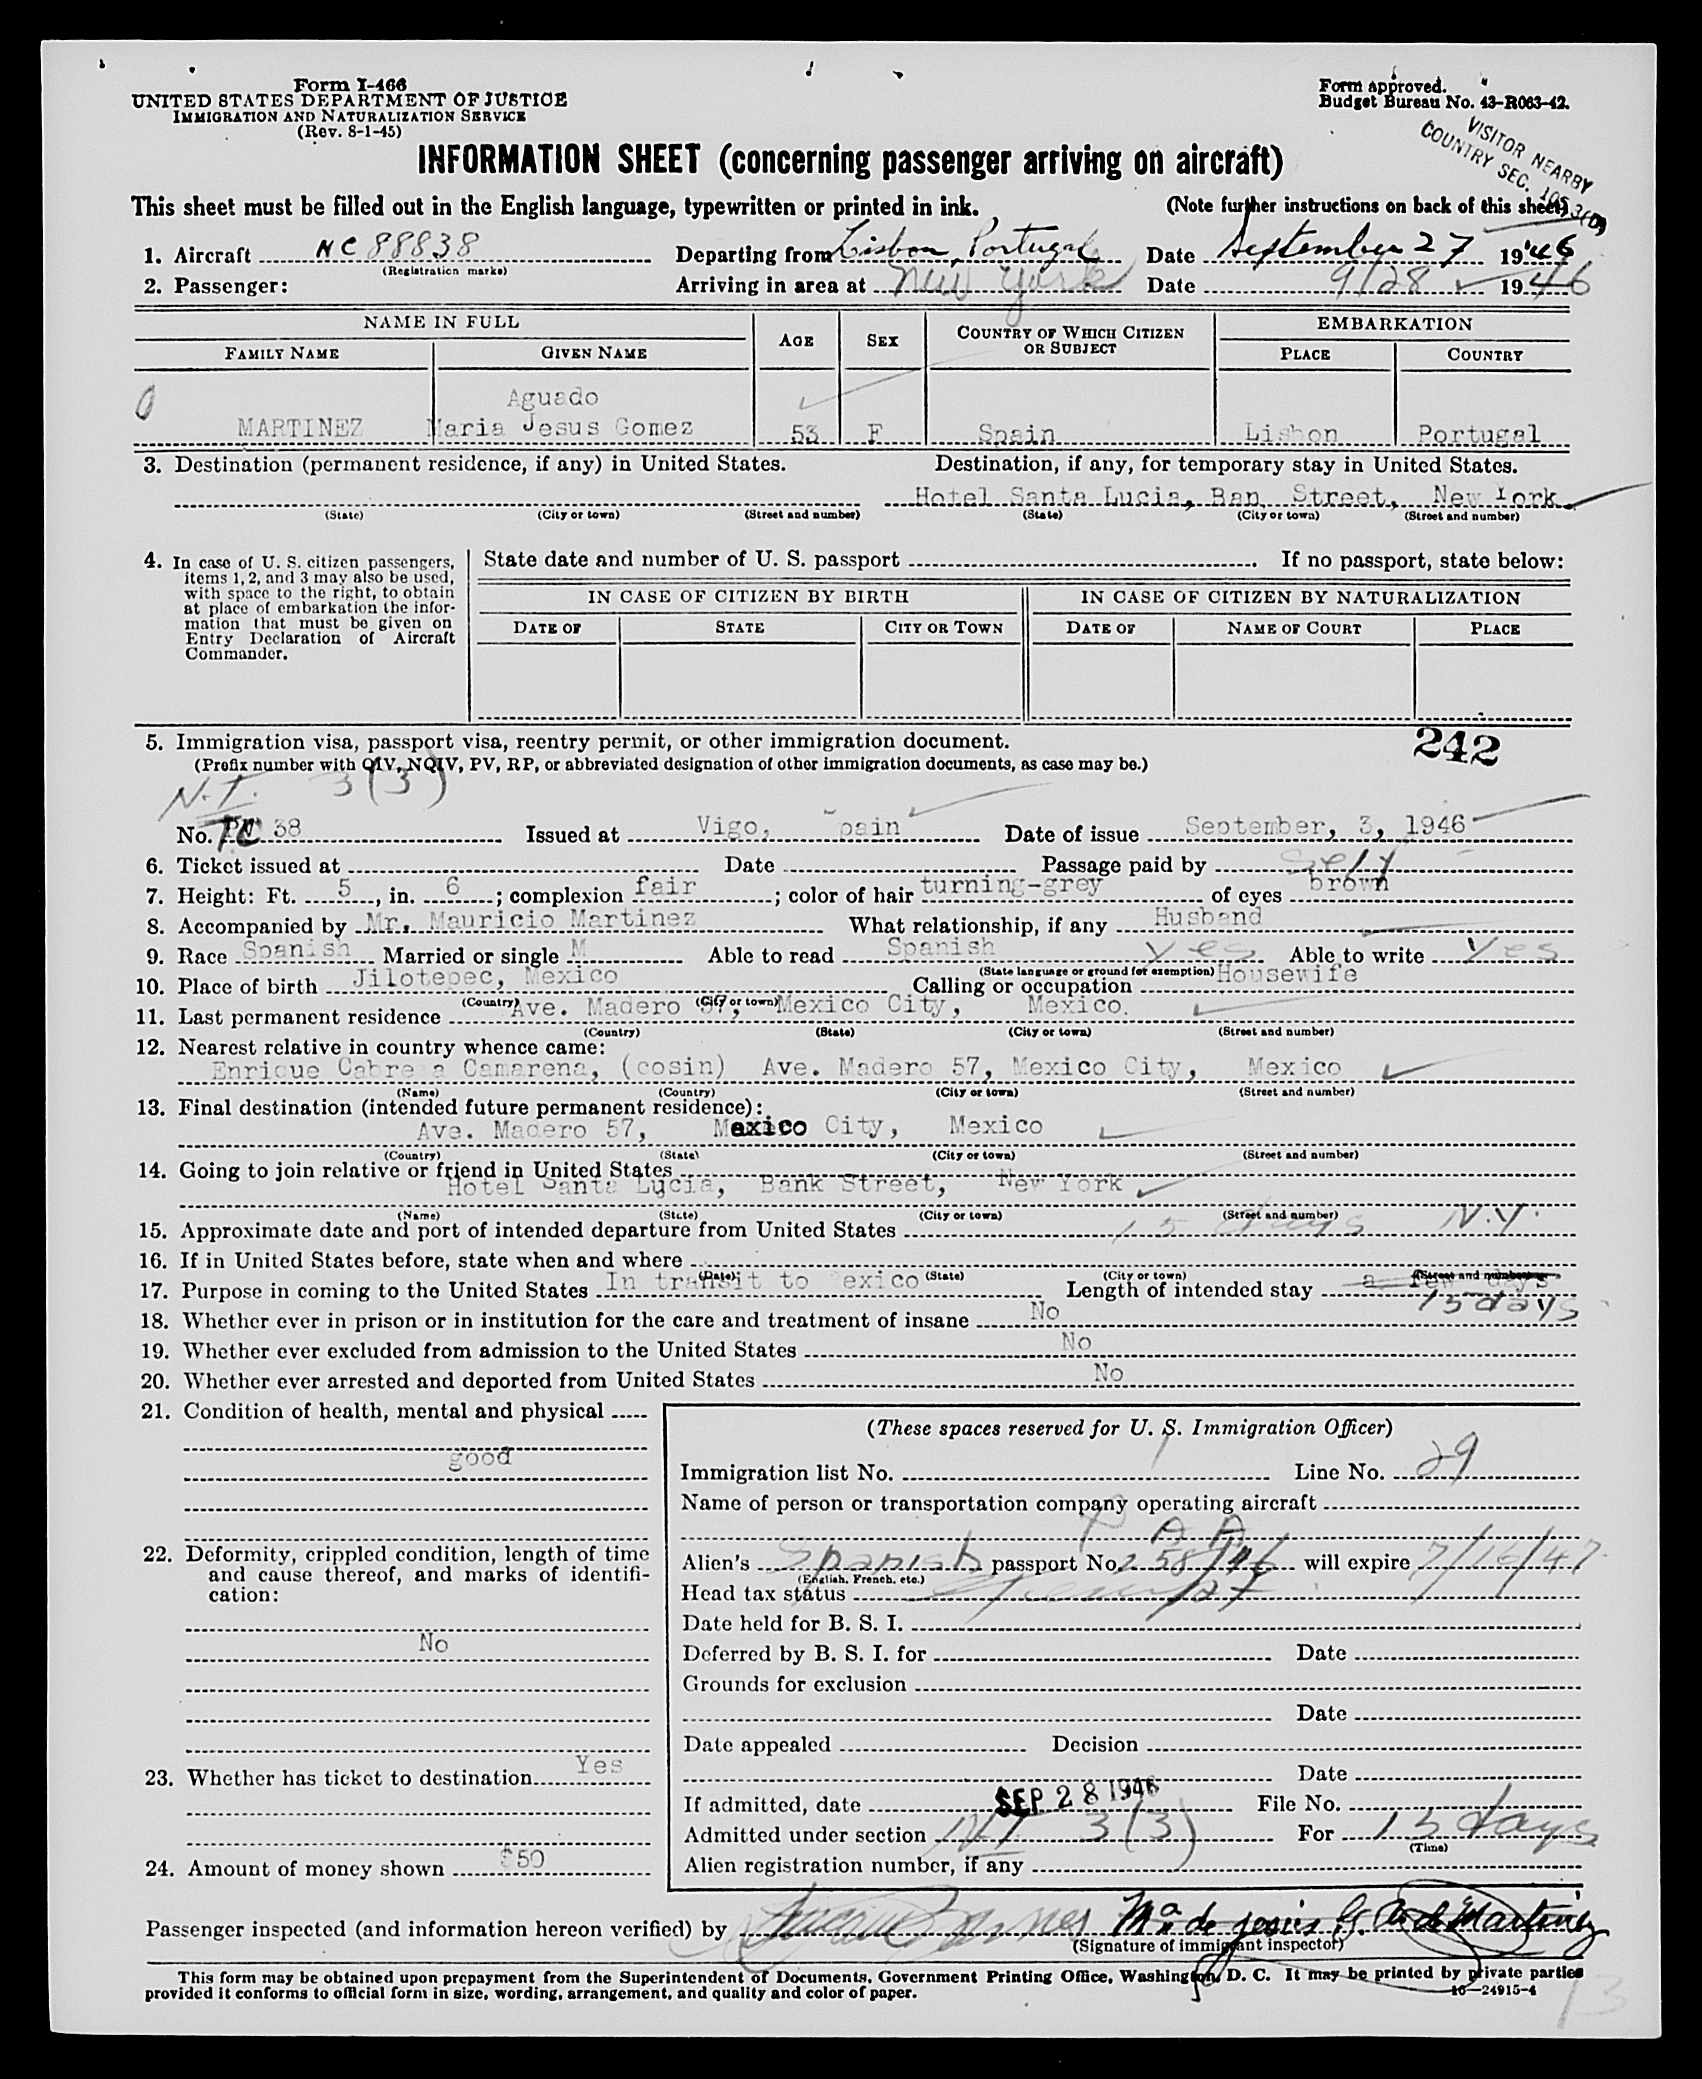 Form I-466
UNITED STATES DEPARTMENT OF JUSTICE
IMMIGRATION AND NATURALIZATION SERVICE
(Rev. 8-1-45)
Form approved.
Budget Bureau No. 43-R063-42.
VISITOR NEARBY
COUNTRY SEC.
INFORMATION SHEET (concerning passenger arriving on aircraft)
This sheet must be filled out in the English language, typewritten or printed in ink. (Note further instructions on back of this sheet)
1. Aircraft NC 88838 Departing from Lisbon, Portugal Date September 27 1946
(Registration marks)
2. Passenger: Arriving in area at New York Date 9/28 1946
NAME IN FULL AGE SEX COUNTRY OF WHICH CITIZEN OR SUBJECT EMBARKATION
FAMILY NAME GIVEN NAME PLACE COUNTRY
Aguado
MARTINEZ Maria Jesus Gomez 53 F Spain Lisbon Portugal
3. Destination (permanent residence, if any) in United States. Destination, if any, for temporary stay in United States.
Hotel Santa Lucia, Ban Street, New York
(State) (City or town) (Street and number) (State) (City or town) (Street and number)
4. In case of U. S. citizen passengers, items 1, 2, and 3 may also be used, with space to the right, to obtain at place of embarkation the information that must be given on Entry Declaration of Aircraft Commander.
State date and number of U. S. passport . If no passport, state below:
IN CASE OF CITIZEN BY BIRTH IN CASE OF CITIZEN BY NATURALIZATION
DATE OF STATE CITY OR TOWN DATE OF NAME OF COURT PLACE
5. Immigration visa, passport visa, reentry permit, or other immigration document. 242
(Prefix number with QIV, NQIV, PV, RP, or abbreviated designation of other immigration documents, as case may be.)
N.T. 3(3)
No. TC 38 Issued at Vigo, Spain Date of issue September, 3, 1946
6. Ticket issued at Date Passage paid by Self
7. Height: Ft. 5, in. 6; complexion fair; color of hair turning-grey of eyes brown
8. Accompanied by Mr. Mauricio Martinez What relationship, if any Husband
9. Race Spanish Married or single M Able to read Spanish yes Able to write Yes
(State language or ground for exemption)
10. Place of birth Jilotepec, Mexico Calling or occupation Housewife
(Country) (City or town)
11. Last permanent residence Ave. Madero 57, Mexico City, Mexico.
(Country) (State) (City or town) (Street and number)
12. Nearest relative in country whence came:
Enrique Cabrera Camarena, (cosin) Ave. Madero 57, Mexico City, Mexico
(Name) (Country) (City or town) (Street and number)
13. Final destination (intended future permanent residence):
Ave. Madero 57, Mexico City, Mexico
(Country) (State) (City or town) (Street and number)
14. Going to join relative or friend in United States
Hotel Santa Lycia, Bank Street, New York
(Name) (State) (City or town) (Street and number)
15. Approximate date and port of intended departure from United States 15 days N.Y.
16. If in United States before, state when and where
(Date) (State) (City or town) (Street and number)
17. Purpose in coming to the United States In transit to Mexico Length of intended stay a few days
15 days
18. Whether ever in prison or in institution for the care and treatment of insane No
19. Whether ever excluded from admission to the United States No
20. Whether ever arrested and deported from United States No
21. Condition of health, mental and physical
good
22. Deformity, crippled condition, length of time and cause thereof, and marks of identification:
No
23. Whether has ticket to destination Yes
24. Amount of money shown $50
(These spaces reserved for U. S. Immigration Officer)
Immigration list No. Line No. 29
Name of person or transportation company operating aircraft
P A A
Alien's Spanish passport No. 258/46 will expire 7/16/47
(English, French, etc.)
Head tax status Exempt
Date held for B. S. I.
Deferred by B. S. I. for Date
Grounds for exclusion
Date
Date appealed Decision
Date
If admitted, date SEP 28 1946 File No.
Admitted under section NT 3(3) For 15 days
(Time)
Alien registration number, if any
Passenger inspected (and information hereon verified) by Mª de Jesús G. A. de Martinez
(Signature of immigrant inspector)
This form may be obtained upon prepayment from the Superintendent of Documents, Government Printing Office, Washington, D. C. It may be printed by private parties
provided it conforms to official form in size, wording, arrangement, and quality and color of paper. 16—24915-4